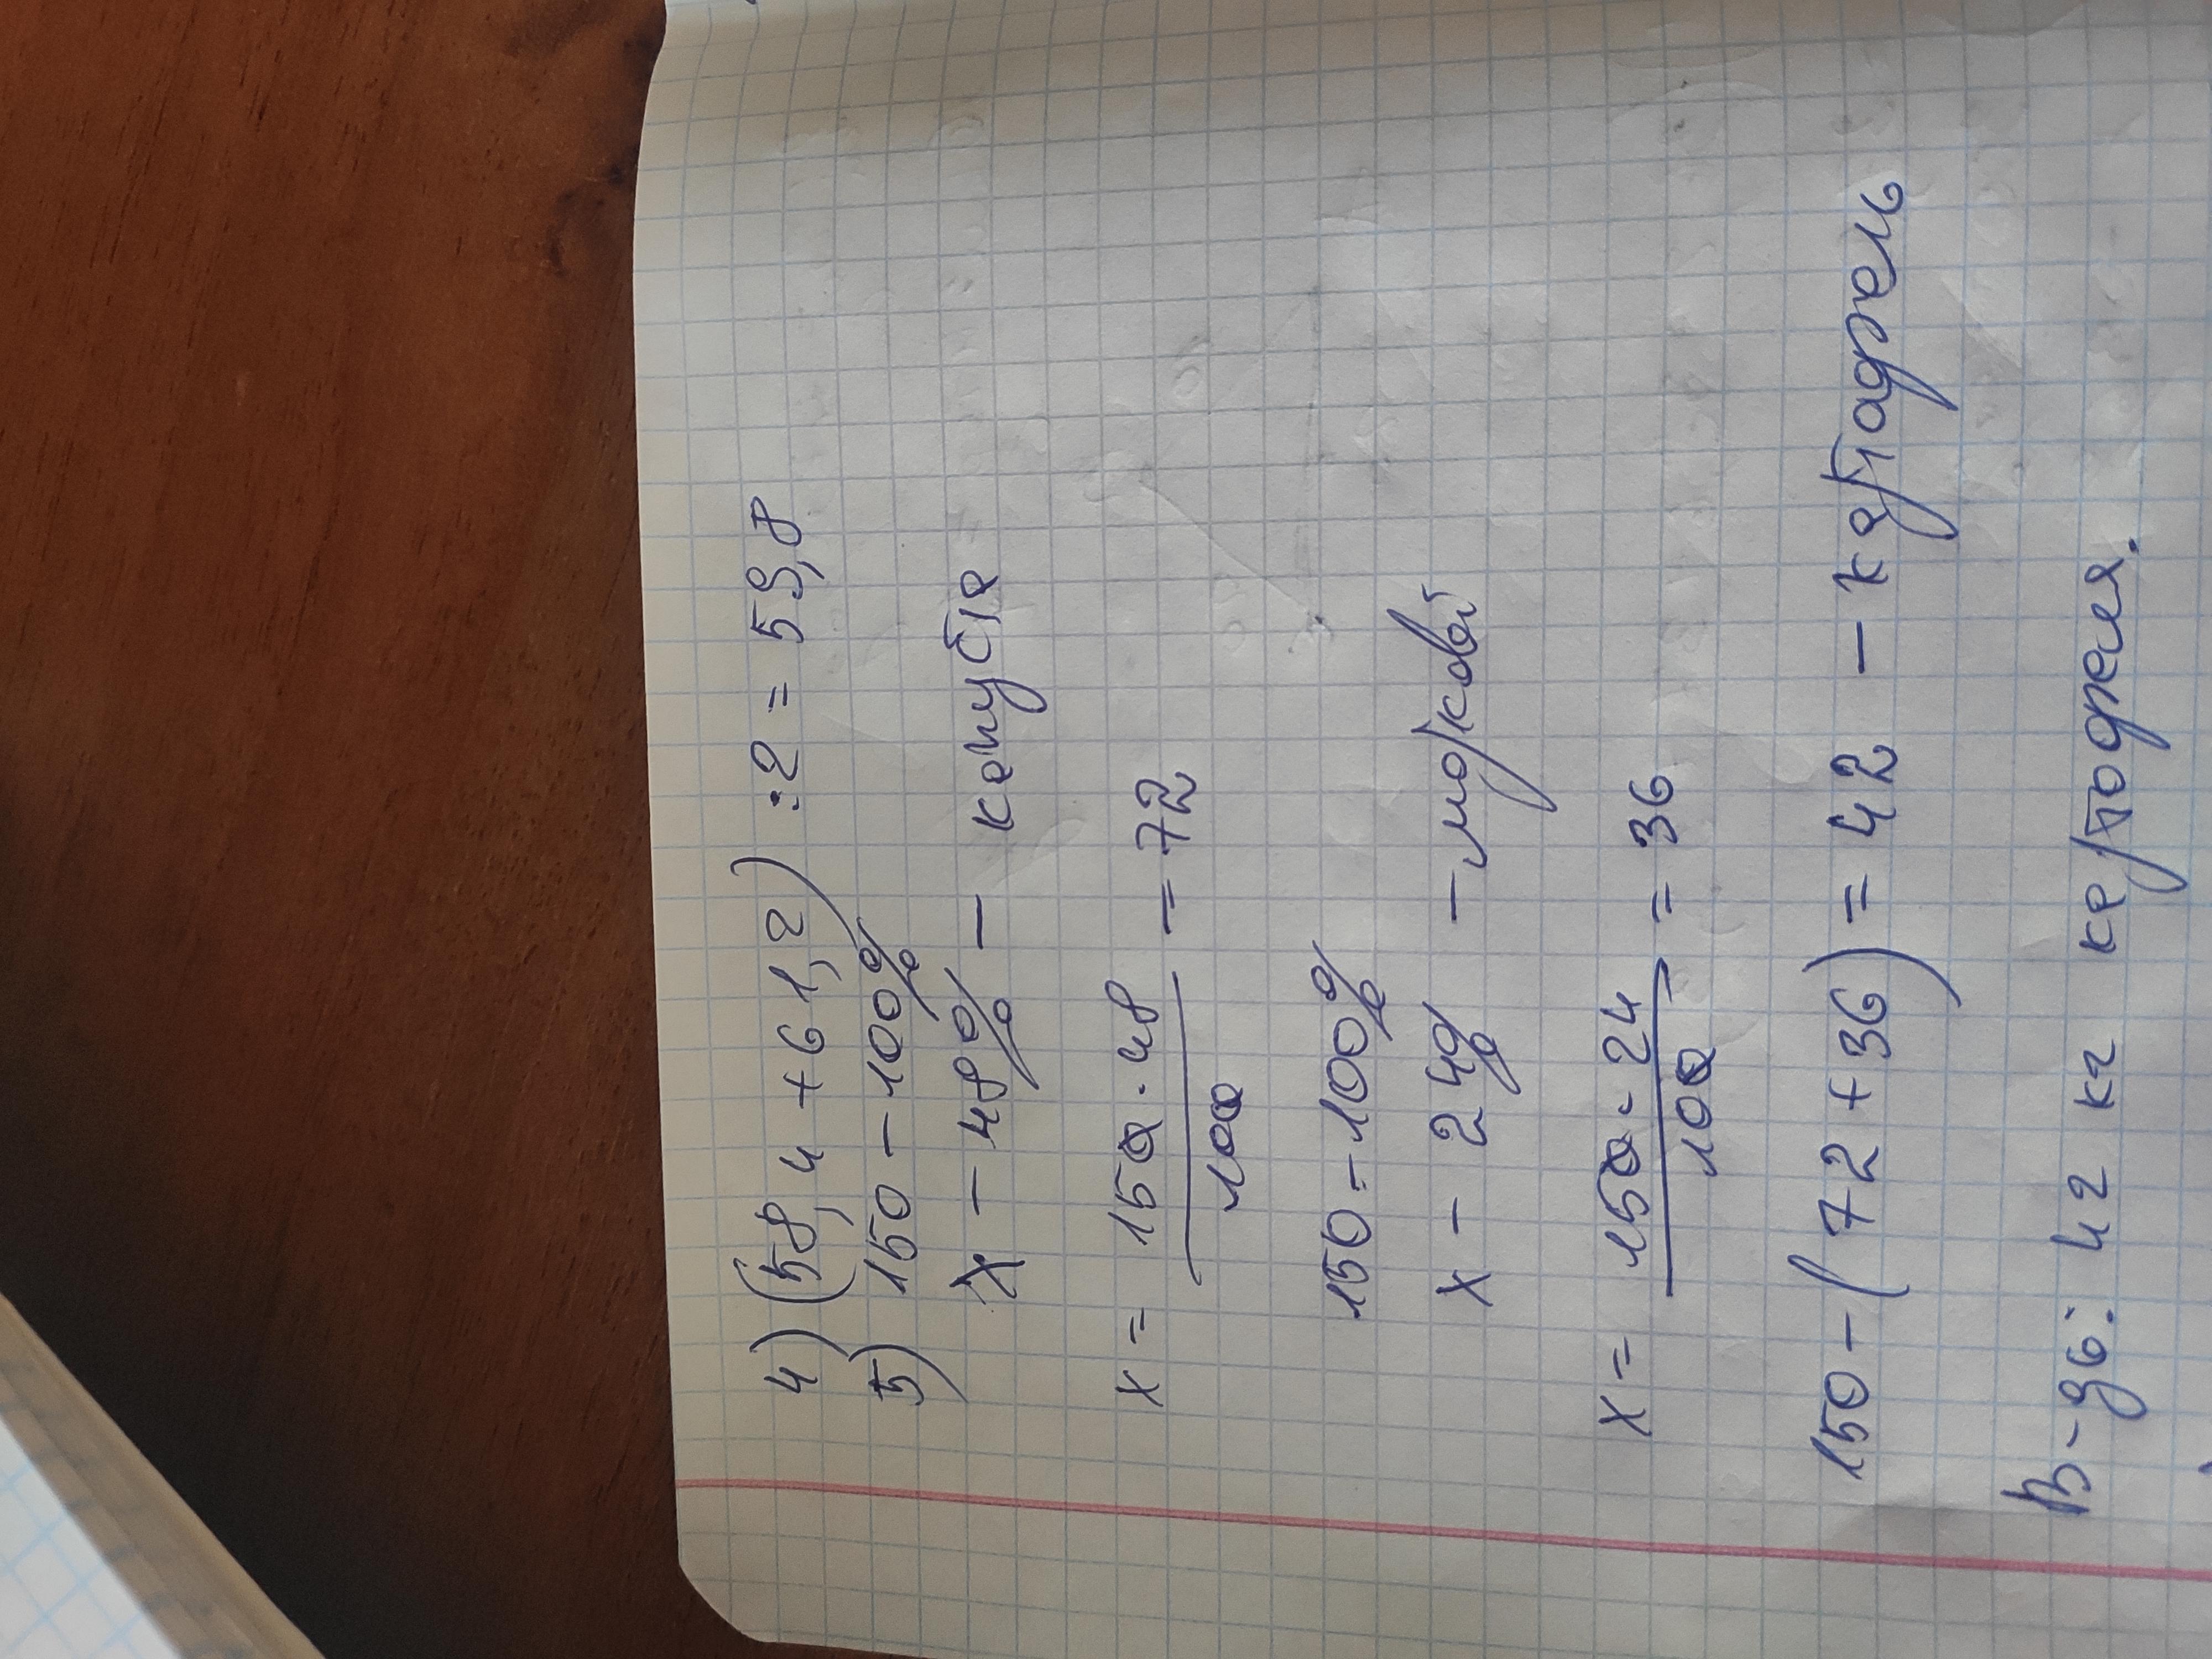 4) (58,4 + 61,2) : 2 = 59,8
5) 150 - 100%
x - 48% - капуста
x = 150 · 48 / 100 = 72
150 - 100%
x - 24% - моркові
x = 150 · 24 / 100 = 36
150 - (72 + 36) = 42 - картофель
В-дь: 42 кг картофеля.